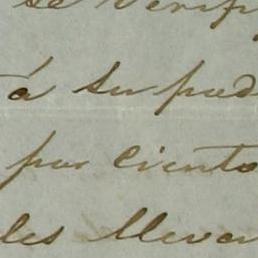 se verif
á su pad
por ciento
les llevar